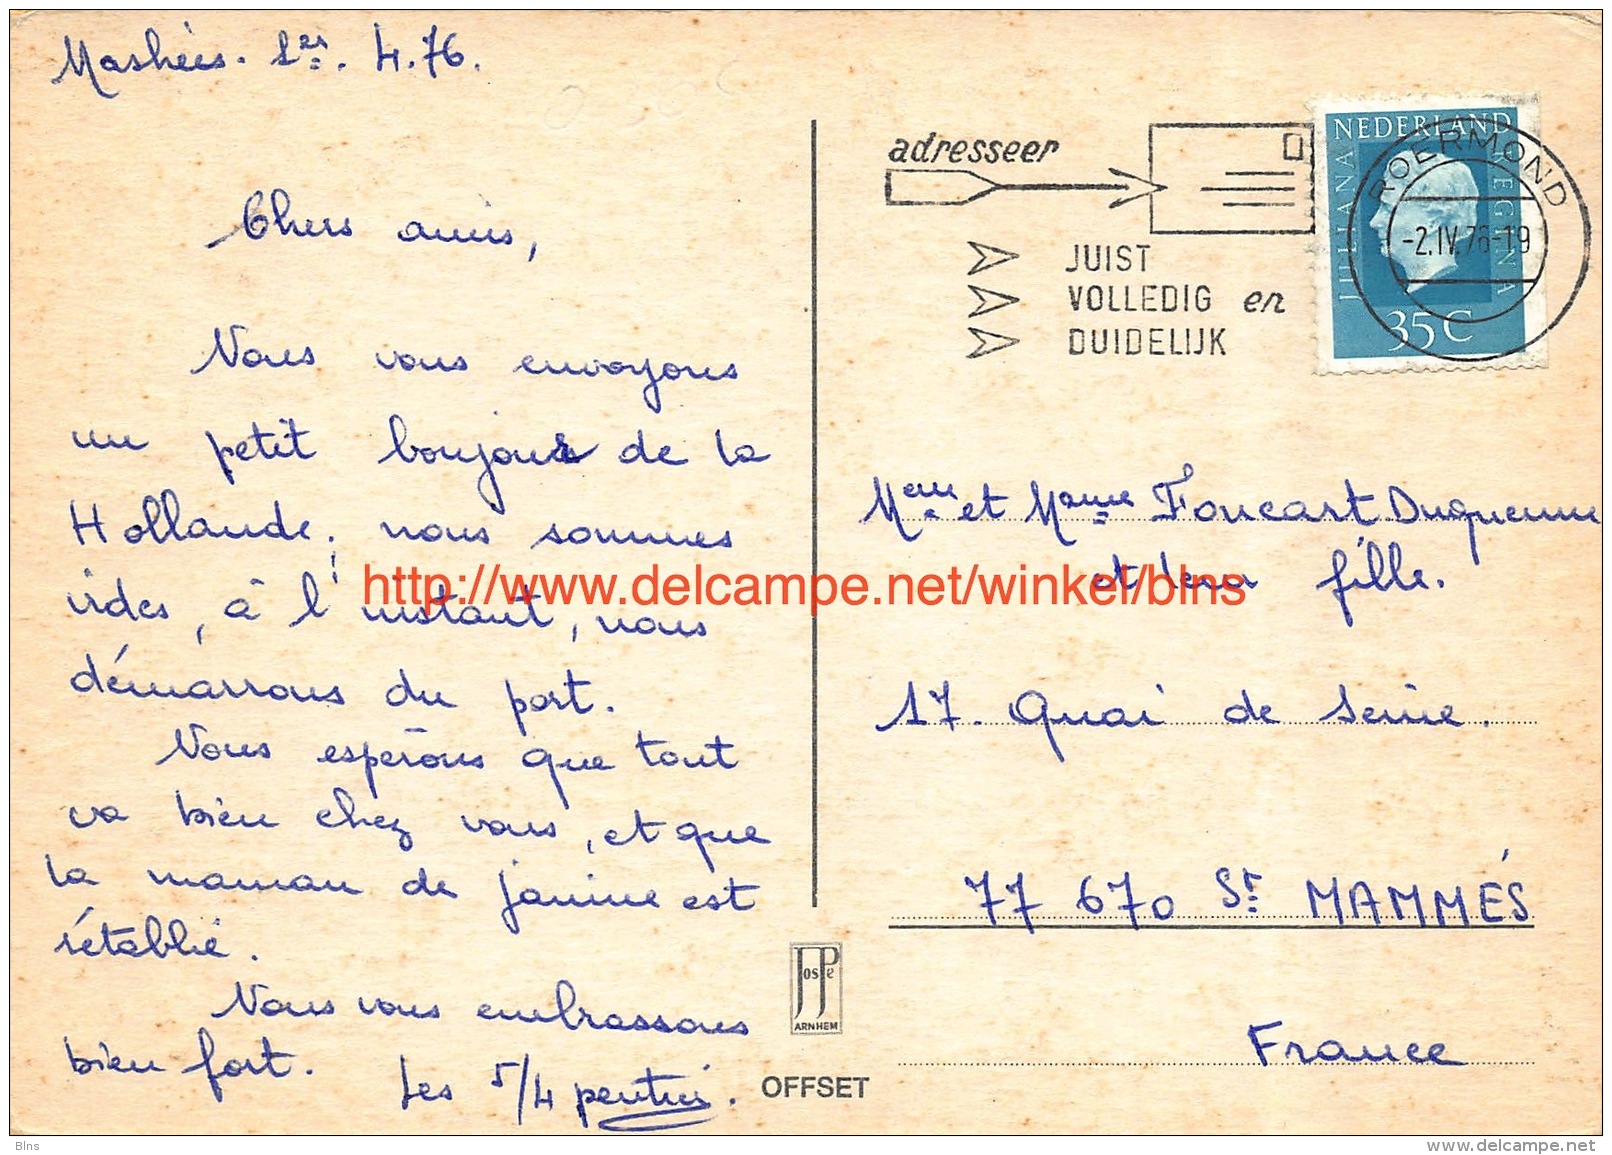 1er. 4.76.
Chers amis,
Nous vous envoyons
un petit boujour de la
Hollande, nous sommes
vides, à l'instant, nous
démarrons du port.
Nous espérons que tout
va bien chez vous, et que
la maman de janine est
rétablie.
Nous vous embrassons
bien fort.
Les 5/4
adresseer
JUIST
VOLLEDIG en
DUIDELIJK
NEDERLAND
JULIANA REGINA
35 C
ROERMOND
-2.IV.76-19
et Mame Foucart Duquenne
et leur fille.
17. Quai de Seine.
77 670 St MAMMÉS
France
JosPe
ARNHEM
OFFSET
http://www.delcampe.net/winkel/blns
Blns
www.delcampe.net